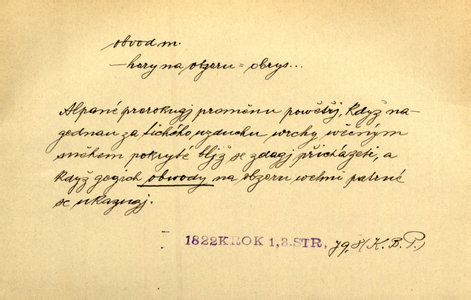 obvod m.
—hory na obzoru = obrys...
Alpané prorokugj proměnu powětřj, když na-
gednau za tichého wzduchu wrchy wěčným
sněhem pokryté bljž se zdagj přicházeti, a
když gegich obwody na obzoru welmi patrné
se ukazugj.
1822KROK 1,3.STR, (K. B. P.)